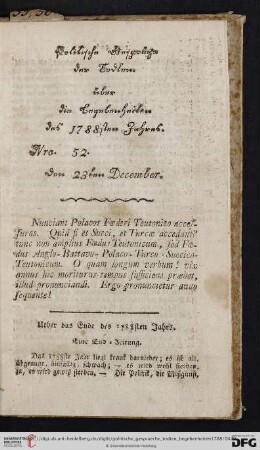 Politische Gespräche
der Todten
über
die Begebenheiten
des 1788sten Jahres.
Nro. 52.
den 23sten December.
Nunciant Polacos Fœderi Teutonico acces-
suros. Quid si et Sueci, et Turcæ accedant?
tunc non amplius Fœdus Teutonicum, sed Fœ-
dus Anglo-Battavo-Polaco-Turco-Suecica-
Teutonicum. O quam longum verbum! vix
annus hic moriturus tempus sufficiens præbet,
illud pronunciandi. Ergo pronuncietur anno
sequente!
Ueber das Ende des 1788sten Jahrs.
Eine End-Zeitung.
Das 1788ste Jahr liegt krank darnieder; es ist alt,
schwach; — es wird wohl sterben.
Ja, es wird gewiß sterben. — Die Politik, die Mißgunst,
DFG